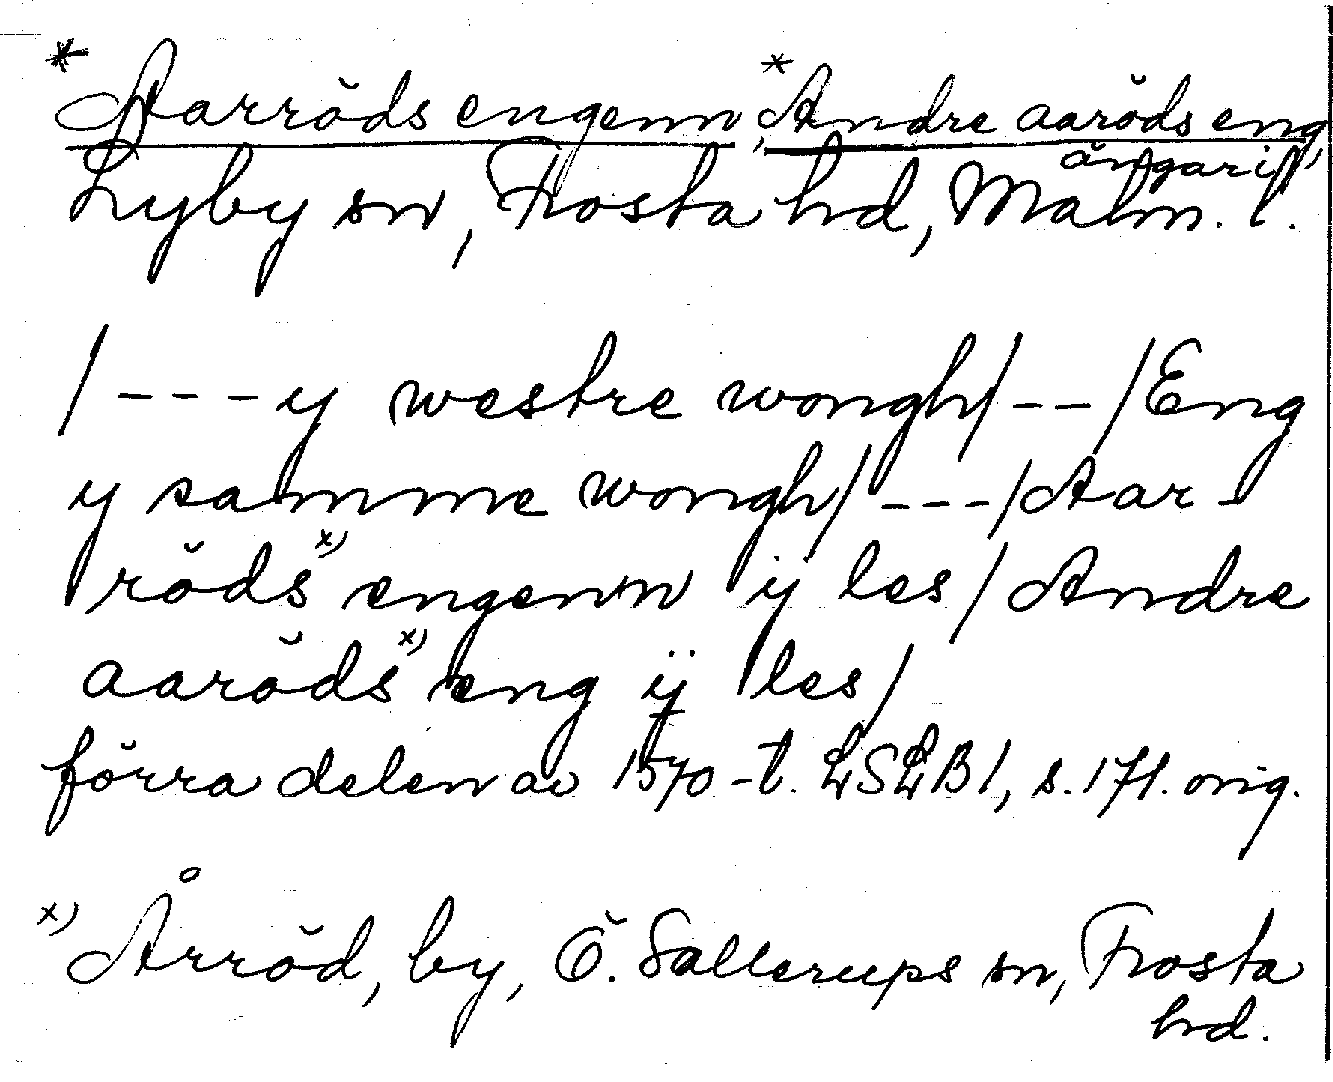 * Aarröds engenn, * Andre aaröds eng,
ängar i
Lyby sn, Frosta hd, Malm. l.
/ - - - y westre wongh / - - / Eng
y samme wongh / - - - / Aar-
röds x) engenn ÿ les / Andre
aaröds x) eng ÿ les /
förra delen av 1570-t. LSLB 1, s. 171. orig.
x) Årröd, by, Ö. Sallerups sn, Frosta
hd.